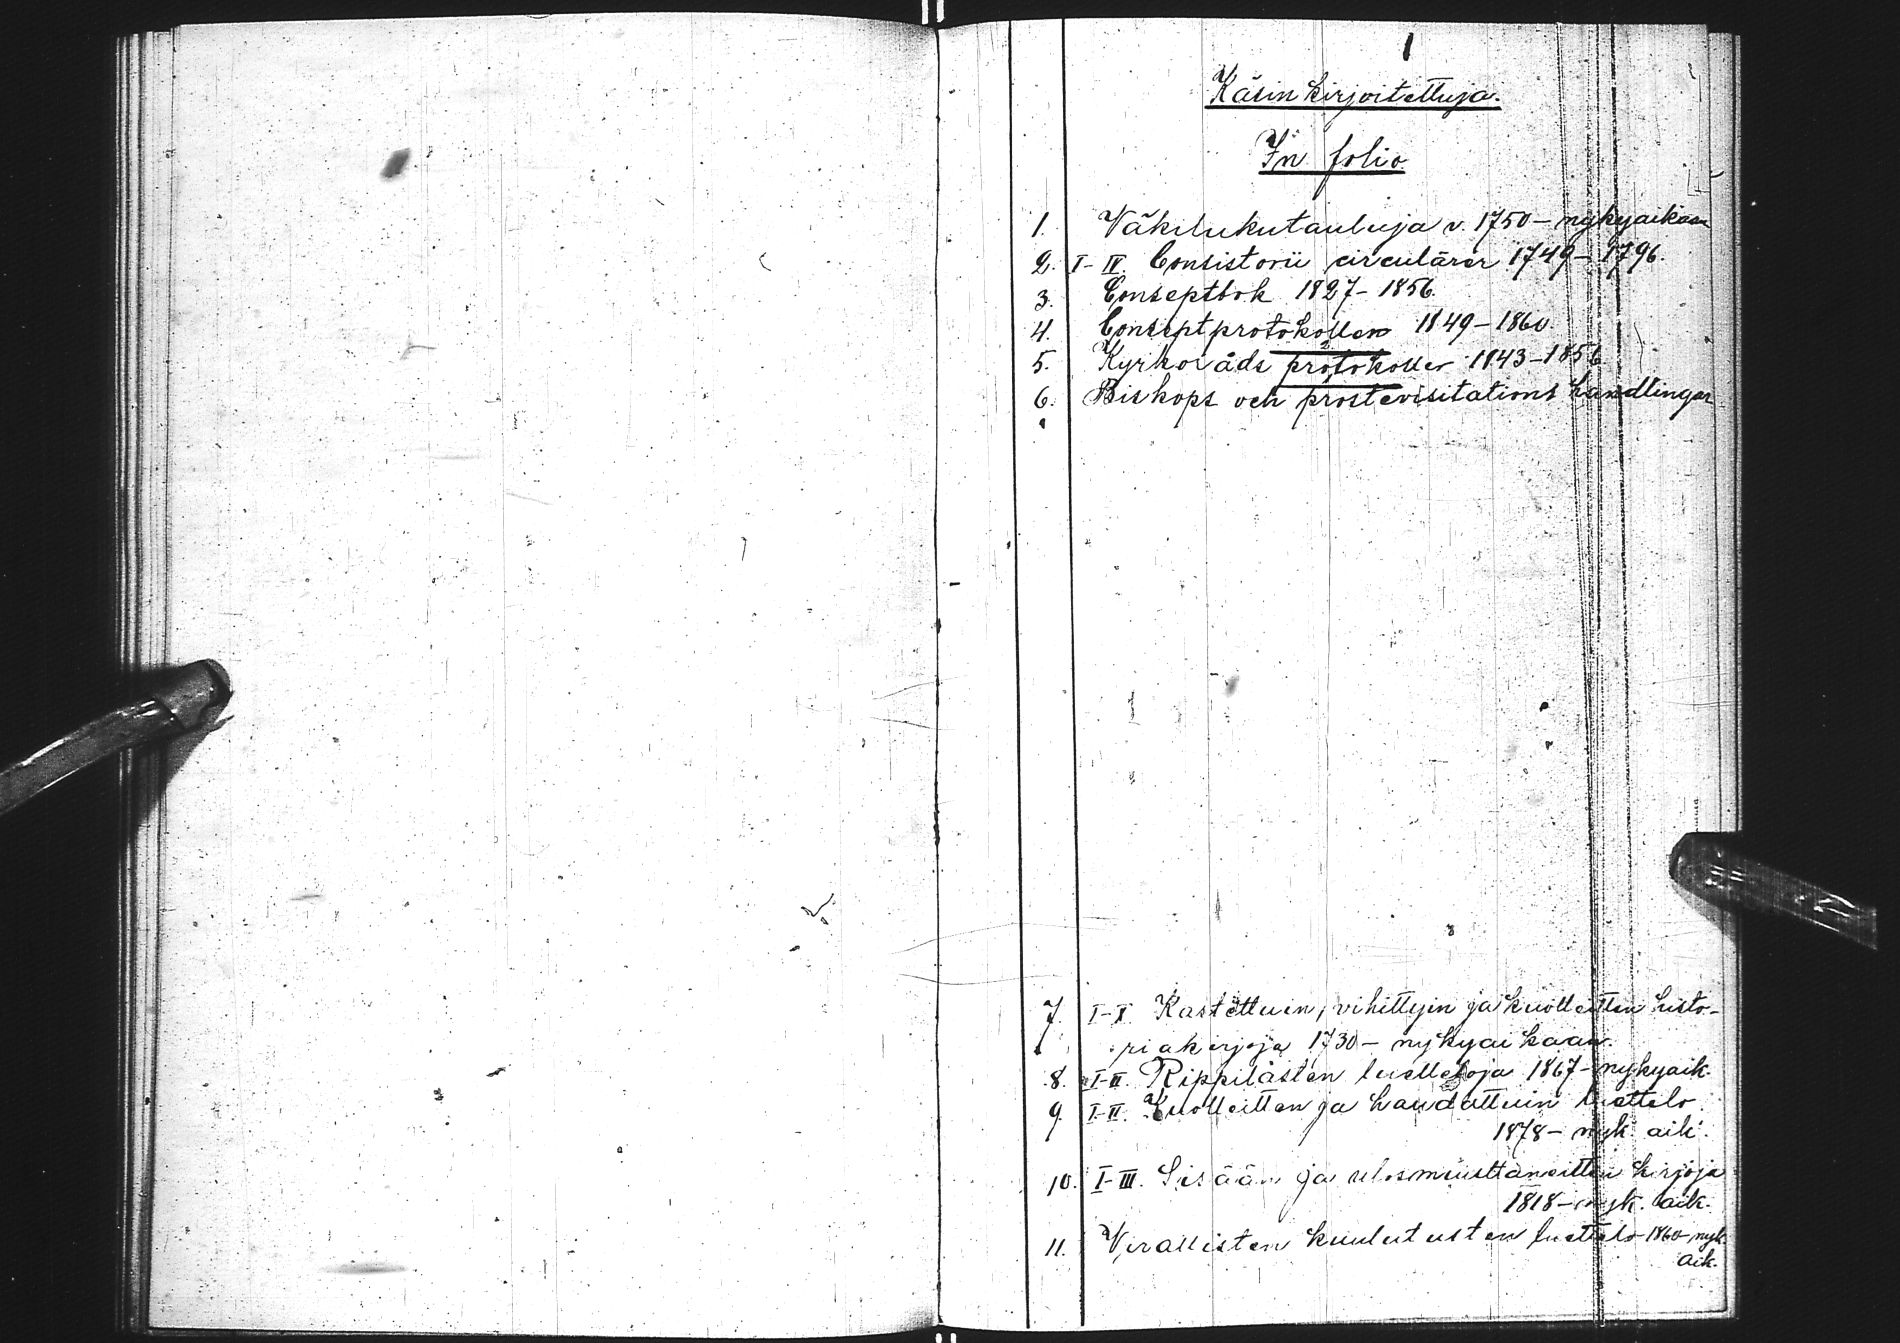 1
Käsin kirjoitettuja.
In folio
1. Väkilukutauluja v. 1750 – nykyaikaan
2. I–IV. Consistorii circulärer 1749 – 1796.
3. Conseptbok 1827 – 1856.
4. Conseptprotokoller 1849 – 1860.
5. Kyrkoråds protokoller 1843 – 1856
6. Biskops och prostevisitations handlingar
7. I–V. Kastettuin, vihittyin ja kuolleitten histo-
riakirjoja 1730 – nykyaikaan.
8. I–II. Rippilästen luetteloja 1867 – nykyaik.
9. I–II. Kuolleitten ja haudattuin luettelo
1878 – nyk. aik.
10. I–III. Sisään ja ulosmuuttaneitten kirjoja
1818 – nyk. aik.
11. Virallisten kuulutusten luettelo 1860 – nyk.
aik.